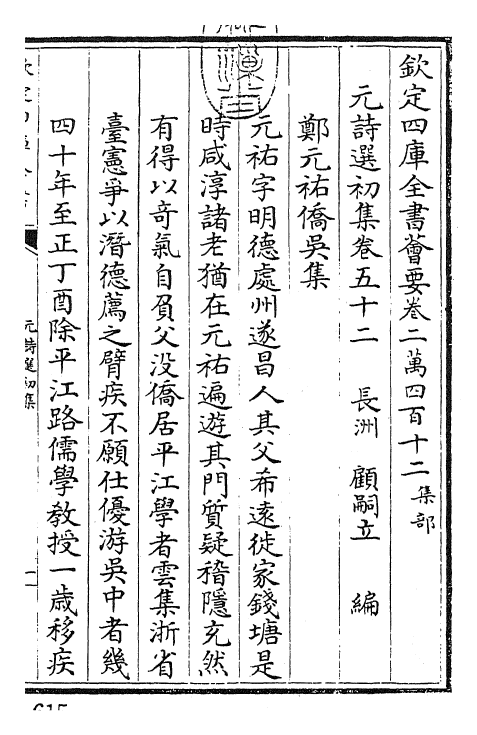 欽定四庫全書薈要卷二萬四百十二 集部
元詩選初集卷五十二 長洲 顧嗣立 編
鄭元祐僑吳集
元祐字明德處州遂昌人其父希遠徙家錢塘是
時咸淳諸老猶在元祐遍遊其門質疑稽隱充然
有得以竒氣自負父没僑居平江學者雲集浙省
臺憲爭以潛德薦之臂疾不願仕優游吳中者幾
四十年至正丁酉除平江路儒學教授一歲移疾
元詩選初集
一